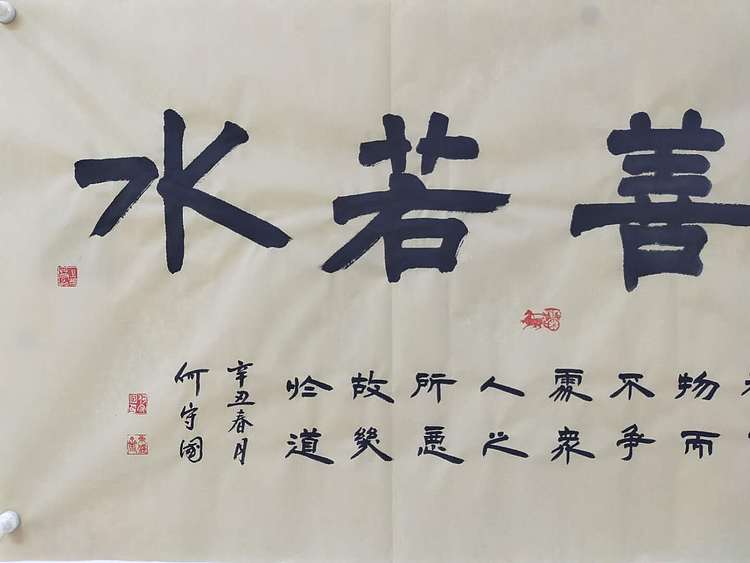 善若水
物而
不争
處衆
人之
所惡
故幾
於道
辛丑春月
何守國